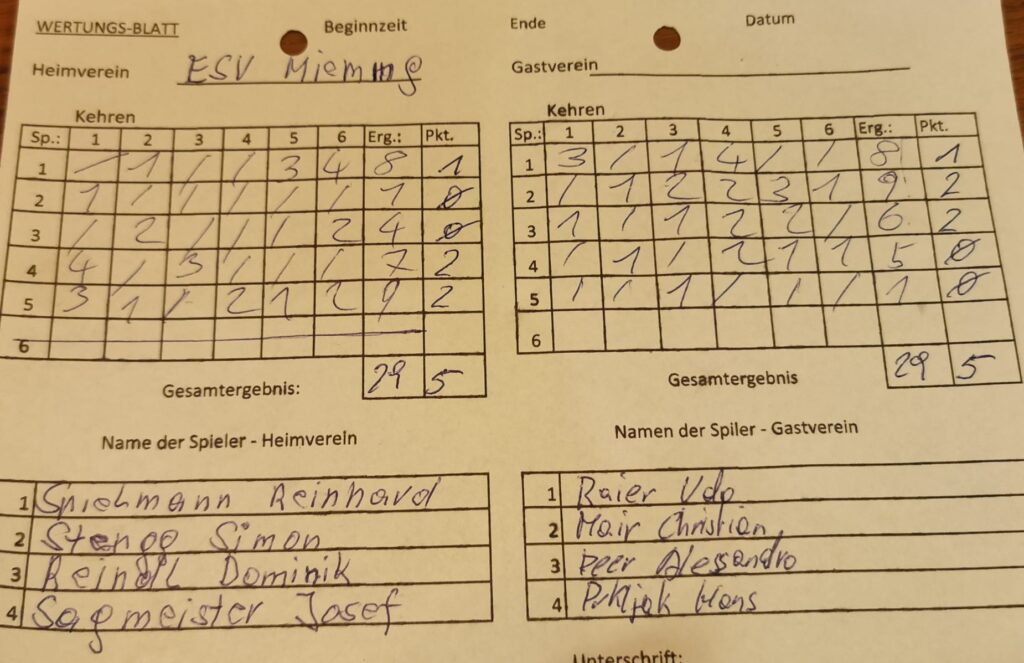 WERTUNGS-BLATT Beginnzeit Ende Datum
Heimverein ESV Mieming Gastverein
Kehren Kehren
Sp.: 1 2 3 4 5 6 Erg.: Pkt. Sp.: 1 2 3 4 5 6 Erg.: Pkt.
1 / 1 / / 3 4 8 1 1 3 / 1 4 / / 8 1
2 1 / / / / / 1 0 2 / 1 2 2 3 1 9 2
3 / 2 / / / 2 4 0 3 1 / 1 2 2 / 6 2
4 4 / 3 / / / 7 2 4 / 1 / 2 1 1 5 0
5 3 1 / 2 1 2 9 2 5 / / 1 / / / 1 0
6 6
Gesamtergebnis: 29 5 Gesamtergebnis 29 5
Name der Spieler - Heimverein Namen der Spiler - Gastverein
1 Spielmann Reinhard 1 Raier Udo
2 Stengg Simon 2 Mair Christian
3 Reindl Dominik 3 Peer Alessandro
4 Sagmeister Josef 4 Hans
Unterschrift: